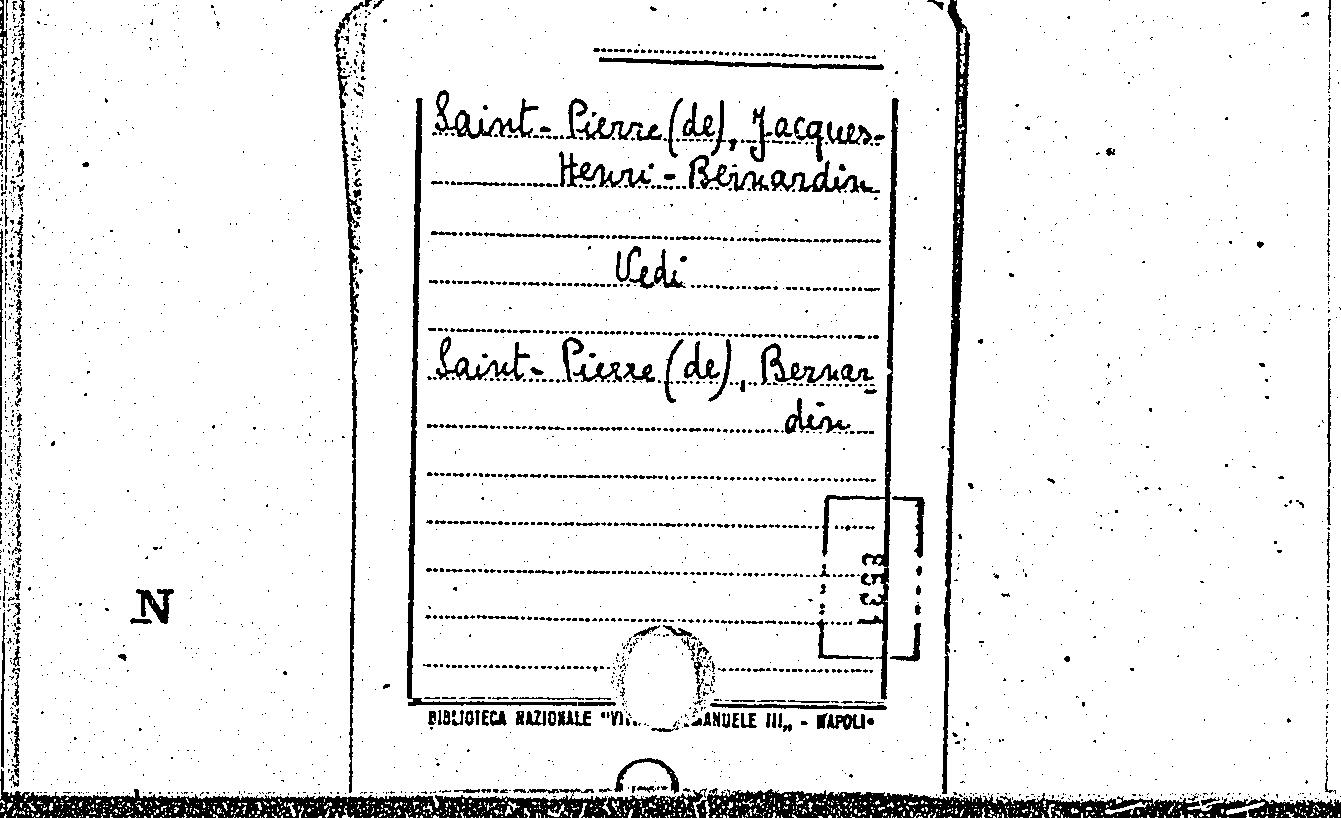 Saint-Pierre (de), Jacques-
Henri-Bernardin
Vedi
Saint-Pierre (de), Bernar-
din
8531
N
BIBLIOTECA NAZIONALE "VI ANUELE III„ - NAPOLI